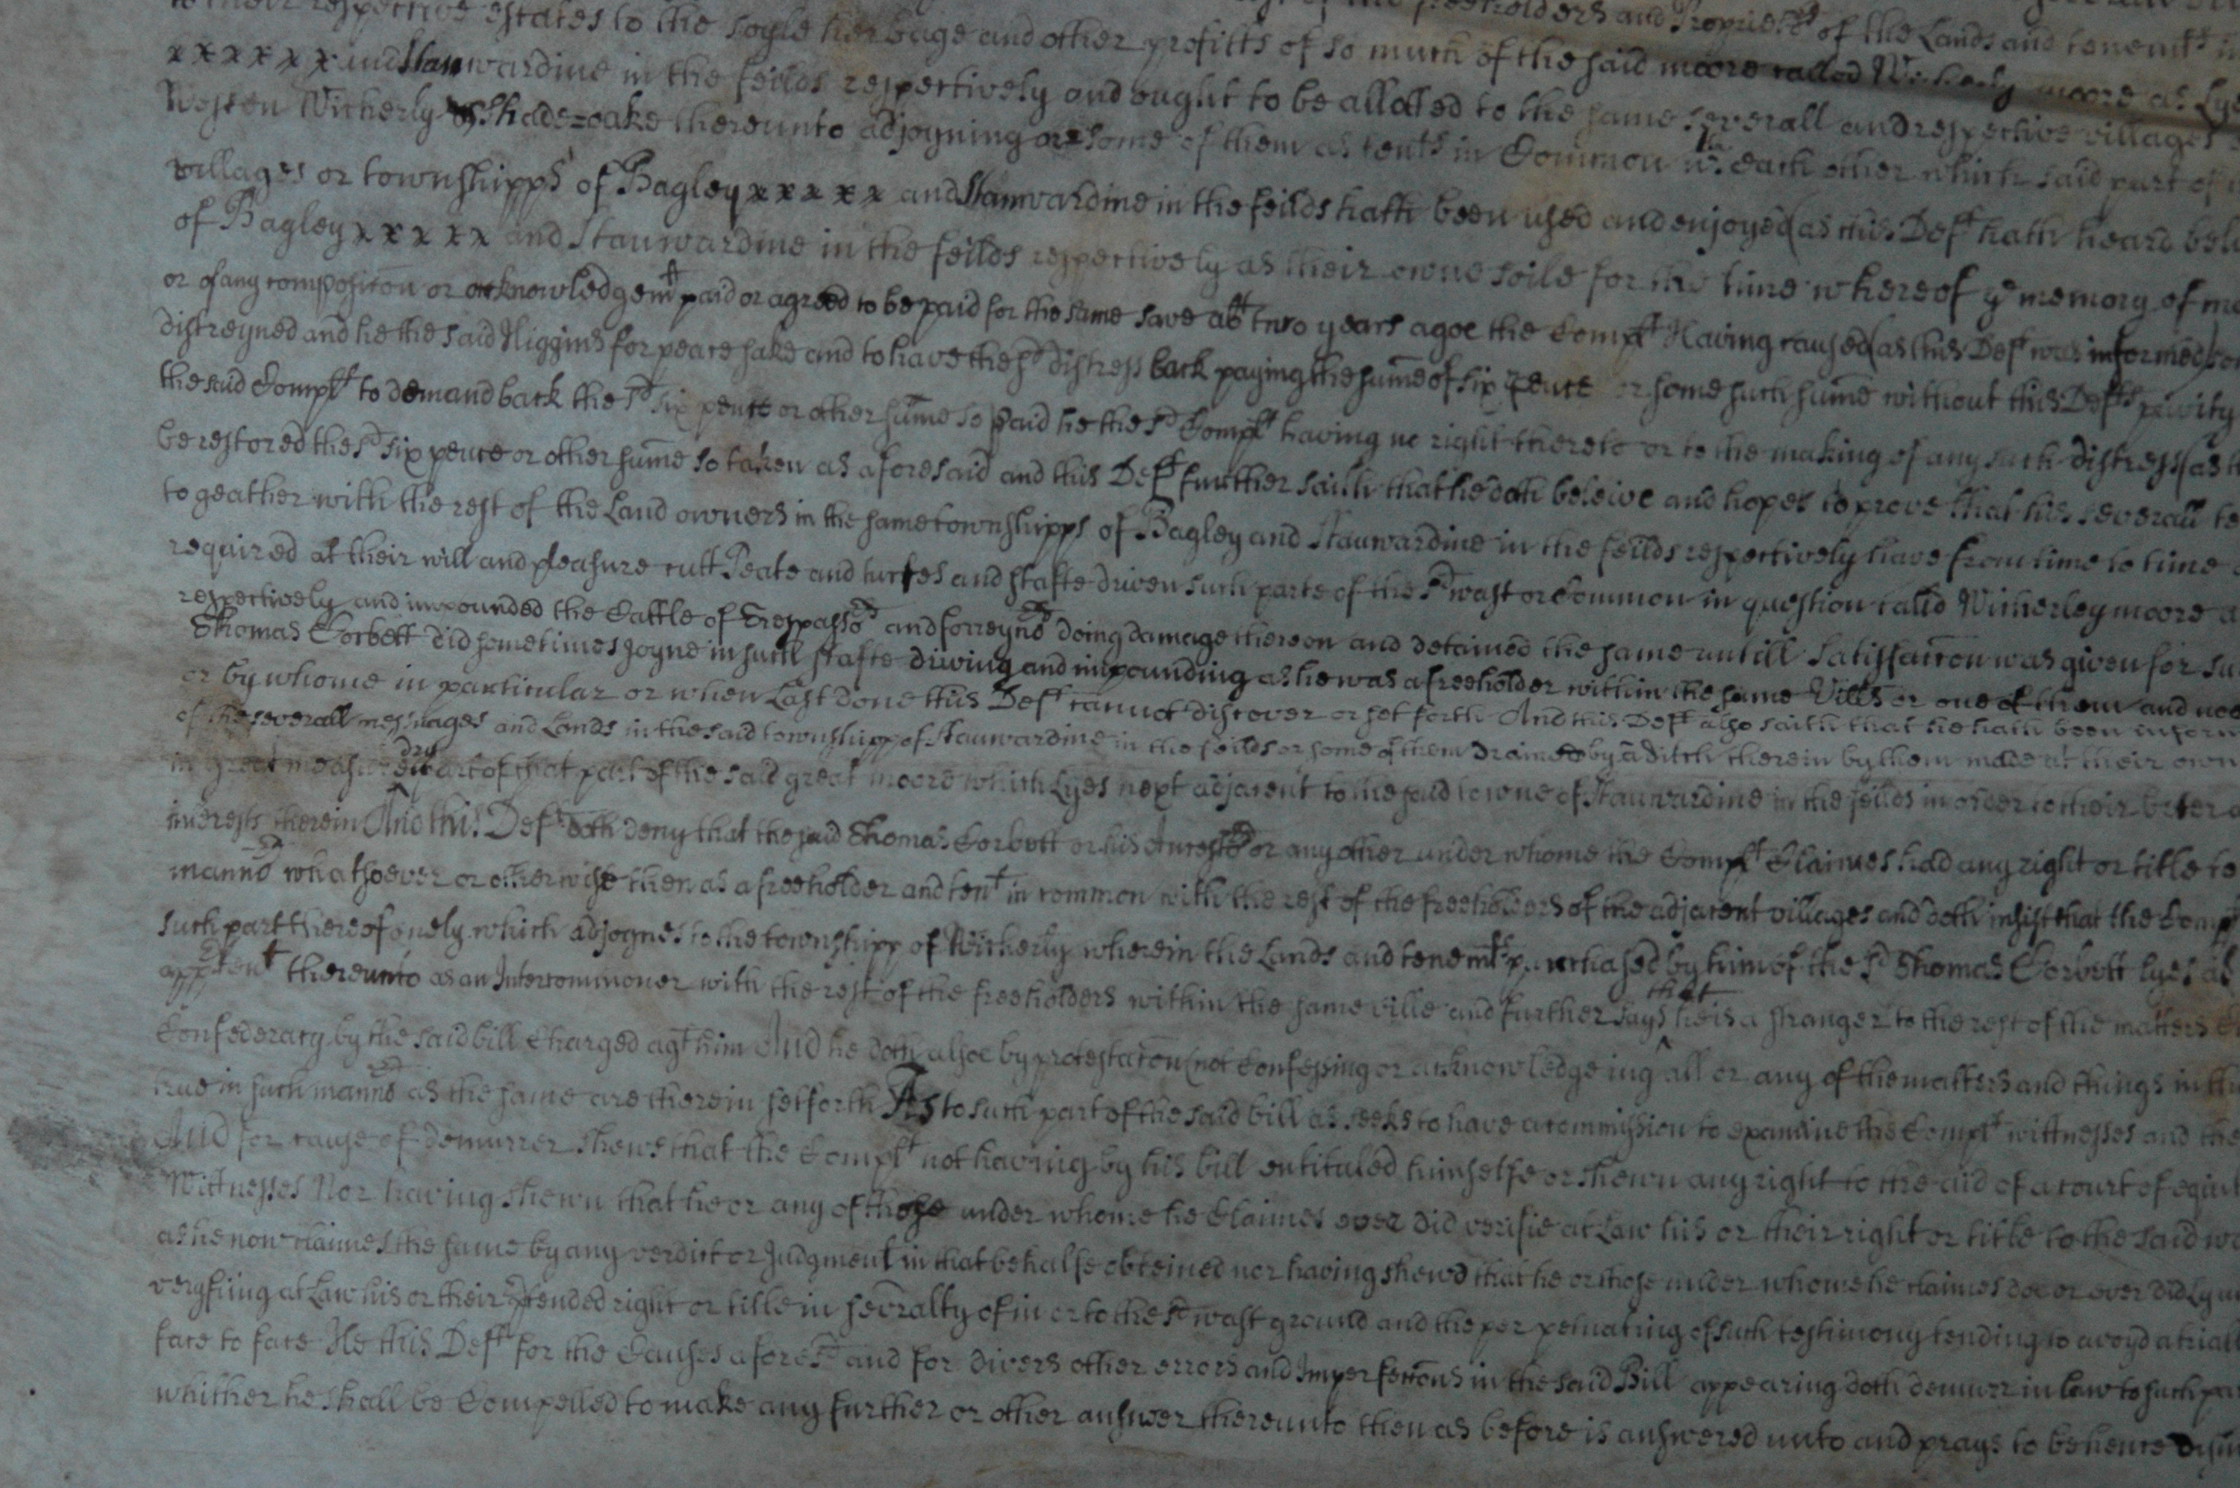 to their respective estates to the soyle herbage and other profitts of so much of the said moore called Witherly moore as Lye
xxxxxx and Stanwardine in the feilds respectively and ought to be allotted to the same severall and respective villages
Weston Witherly & Shade=oake thereunto adjoyning or some of them as tents in Common wth each other which said part of
villages or townshipps of Bagley xxxxx and Stanwardine in the feilds hath been used and enjoyed (as this Deft hath heard bel
of Bagley xxxxx and Stanwardine in the feilds respectively as their owne soile for the time whereof ye memory of m
or of any composicon or acknowledgemt paid or agreed to be paid for the same save abt two years agoe the Complt Having caused (as this Deft was informed)
distreyned and he the said Higgins for peace sake and to have the sd distress back paying the sume of six pence or some such sume without this Defts privity
the said Complt to demand back the sd six pence or other sume so paid he the sd Complt having no right thereto or to the making of any such distress (as
be restored the sd six pence or other sume so taken as aforesaid and this Deft further saith that he doth beleive and hopes to prove that his severall te
togeather with the rest of the Land owners in the same townshipps of Bagley and Stanwardine in the feilds respectively have from time to time
required at their will and pleasure cutt Peate and turfes and stafte driven such parte of the sd wast or Common in question called Witherley moore a
respectively and impounded the Cattle of Trespassors and forreyners doing damage thereon and detained the same untill Satisfaccon was given for su
Thomas Corbett did sometimes joyne in such stafte driving and impounding as he was a freeholder within the same Vills or one of them and not
or by whome in particular or when Last done this Deft cannot discover or set forth And this Deft also saith that he hath been inform
of the severall messuages and Lands in the said townshipp of Stanwardine in the feilds or some of them drained by a ditch therein by them made at their own
in great measure dry part of that part of the said great moore which Lyes next adjacent to the said towne of Stanwardine in the feilds in order to their beter
interests therein And this Deft doth deny that the said Thomas Corbett or his Ancestors or any other under whome the Complt Claimes had any right or title to
manner whatsoever or otherwise then as a freeholder and tent in common with the rest of the freeholders of the adjacent villages and doth insist that the Comp
such part thereof onely which adjoynes to the townshipp of Witherly wherein the Lands and tenemts purchased by him of the sd Thomas Corbett lyes as
thereunto as an Intercommoner with the rest of the freeholders within the same ville and further says that he is a stranger to the rest of the matters
Confederacy by the said bill Charged agt him And he doth alsoe by protestacon (not Confessing or acknowledgeing all or any of the matters and things in th
true in such manner as the same are therein set forth As to such part of the said bill as seeks to have a commission to examine the Complt wittnesses and the
And for cause of demurrer shews that the Complt not having by his bill entituled himselfe or shewn any right to the aid of a court of equi
Wittnesses Nor having shewn that he or any of those under whome he Claimes ever did verifie at Law his or their right or title to the said wa
as he now claimes the same by any verdict or Judgment in that behalfe obteined nor having shewd that he or those under whome he claimes doe or ever did Ly u
veryfiing at Law his or their ptended right or title in sevralty of in or to the sd wast ground and the perpetuating of such testimony tending to avoyd a trial
face to face He this Deft for the Causes aforesd and for divers other errors and Imperfeccons in the said Bill appearing doth demurr in law to such pa
whither he shall be Compelled to make any further or other answer thereunto then as before is answered unto and prays to be hence dism